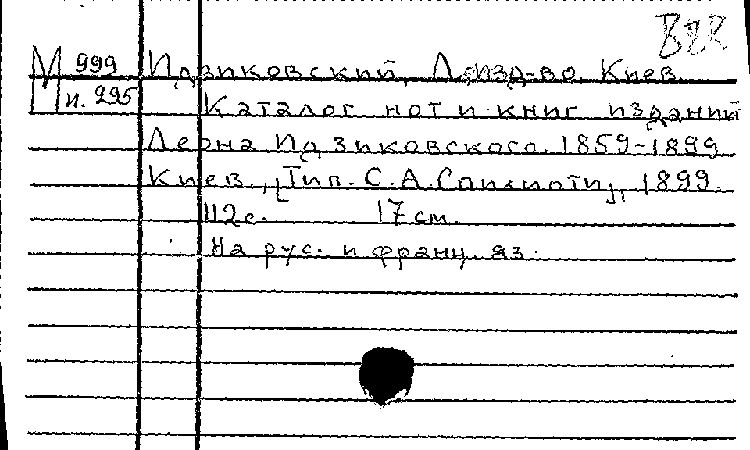 М 999 Идзиковский, Л. изд-во. Киев
п. 295 Каталог нот и книг изданий
Леона Идзиковского. 1859-1899
Киев, [Тип. С. А. Спилиоти], 1899.
112 с. 17 см.
На рус. и франц. яз.